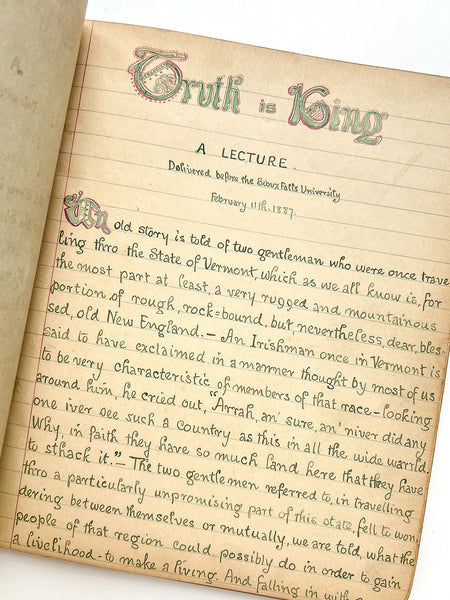 Truth is King
A LECTURE.
Delivered before the Sioux Falls University
February 11th. 1887.
An old story is told of two gentleman who were once trave
ling thro the State of Vermont, which as we all know is, for
the most part at least, a very rugged and mountainous
portion of rough, rock=bound, but, nevertheless, dear, bles-
sed, old New England. — An Irishman once in Vermont is
said to have exclaimed in a manner thought by most of us
to be very characteristic of members of that race – looking
around him, he cried out, "Arrah, an' sure, an' niver did any
one iver see such a country as this in all the wide warrld.
Why, in faith they have so much land here that they have
to sthack it." – The two gentlemen referred to, in travelling
thro a particularly unpromising part of this state, fell to won-
dering between themselves or mutually, we are told, what the
people of that region could possibly do in order to gain
a livelihood - to make a living. And falling in with